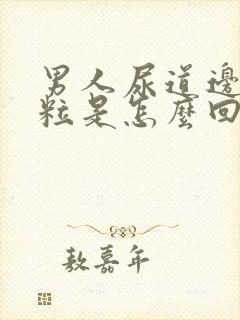 男人尿道邊
粒是怎麼回
敖嘉年